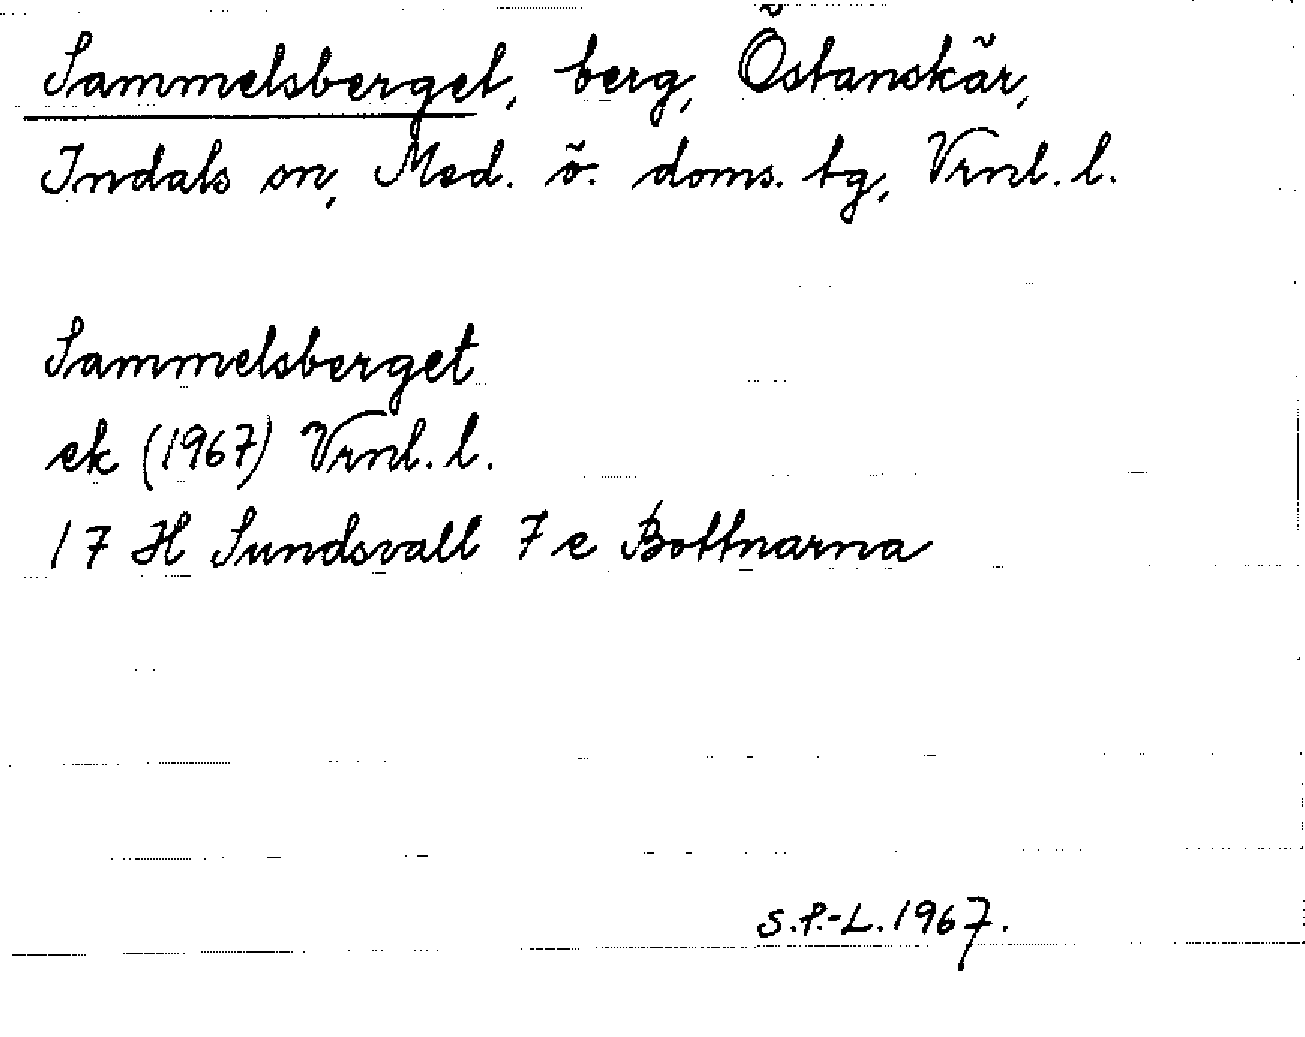 Sammelsberget, berg, Östanskär,
Indals sn, Med. ö. doms. tg, Vrnl. l.
Sammelsberget
ek (1967) Vrnl. l.
17 H Sundsvall 7 e Bottnarna
S.P.-L. 1967.